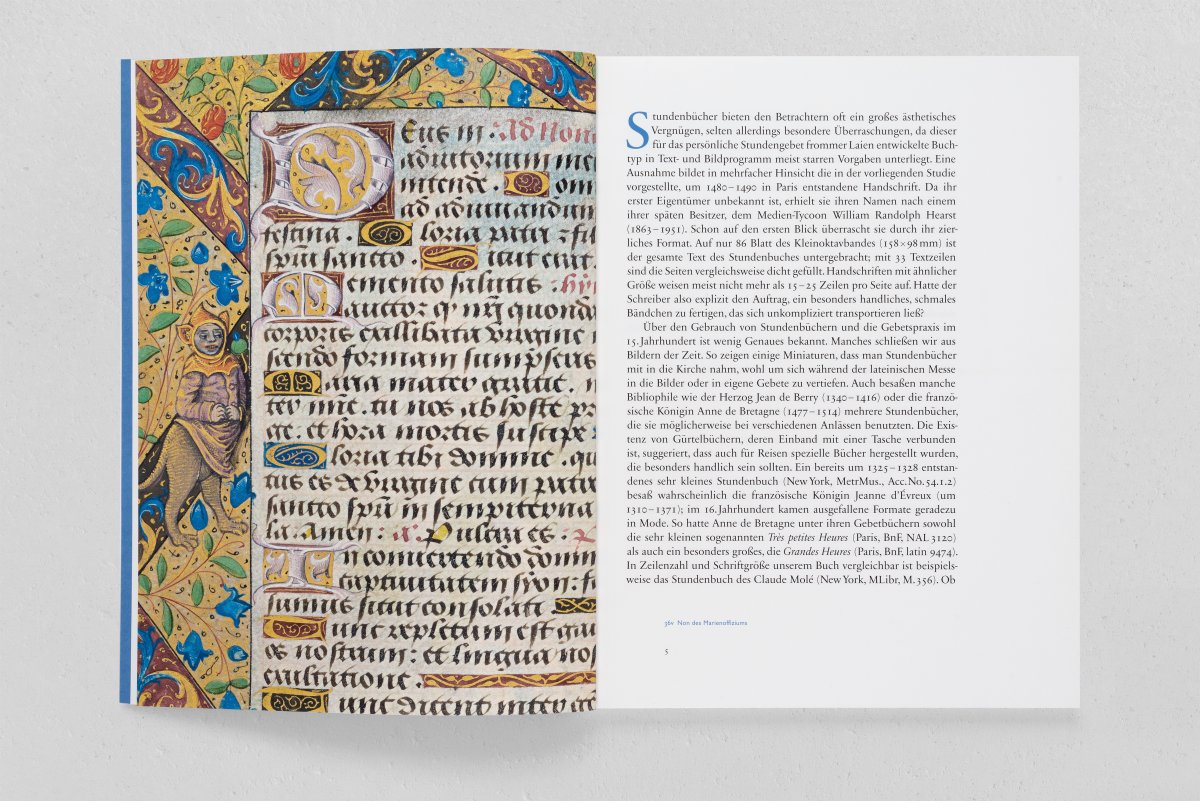 Eus in : Ad Non
adiutorium me
intende . om
ad adiuuandum
festina . loria patri ⁊ fi
spiritui sancto . icut erat
emento salutis : hy
auctor q' nri quonda
corporis ex illibata virgine
scendo formam sumpseris
aria mater gratie .
ter mie . tu nos ab hoste pr
ge . et hora mortis suscipe
loria tibi domine . qu
tus es de virgine cum patri
sancto spu in sempiterna
la . Amen : a pulcra es .
n conuertendo domin
captiuitatem syon : f
sumus sicut consolati .
unc repletum est gau
os nostrum : et lingua nos
exultatione .
unc dicent inter ge
Stundenbücher bieten den Betrachtern oft ein großes ästhetisches
Vergnügen, selten allerdings besondere Überraschungen, da dieser
für das persönliche Stundengebet frommer Laien entwickelte Buch-
typ in Text- und Bildprogramm meist starren Vorgaben unterliegt. Eine
Ausnahme bildet in mehrfacher Hinsicht die in der vorliegenden Studie
vorgestellte, um 1480–1490 in Paris entstandene Handschrift. Da ihr
erster Eigentümer unbekannt ist, erhielt sie ihren Namen nach einem
ihrer späten Besitzer, dem Medien-Tycoon William Randolph Hearst
(1863–1951). Schon auf den ersten Blick überrascht sie durch ihr zier-
liches Format. Auf nur 86 Blatt des Kleinoktavbandes (158 × 98 mm) ist
der gesamte Text des Stundenbuches untergebracht; mit 33 Textzeilen
sind die Seiten vergleichsweise dicht gefüllt. Handschriften mit ähnlicher
Größe weisen meist nicht mehr als 15–25 Zeilen pro Seite auf. Hatte der
Schreiber also explizit den Auftrag, ein besonders handliches, schmales
Bändchen zu fertigen, das sich unkompliziert transportieren ließ?
Über den Gebrauch von Stundenbüchern und die Gebetspraxis im
15. Jahrhundert ist wenig Genaues bekannt. Manches schließen wir aus
Bildern der Zeit. So zeigen einige Miniaturen, dass man Stundenbücher
mit in die Kirche nahm, wohl um sich während der lateinischen Messe
in die Bilder oder in eigene Gebete zu vertiefen. Auch besaßen manche
Bibliophile wie der Herzog Jean de Berry (1340–1416) oder die franzö-
sische Königin Anne de Bretagne (1477–1514) mehrere Stundenbücher,
die sie möglicherweise bei verschiedenen Anlässen benutzten. Die Exis-
tenz von Gürtelbüchern, deren Einband mit einer Tasche verbunden
ist, suggeriert, dass auch für Reisen spezielle Bücher hergestellt wurden,
die besonders handlich sein sollten. Ein bereits um 1325–1328 entstan-
denes sehr kleines Stundenbuch (New York, MetrMus., Acc. No. 54.1.2)
besaß wahrscheinlich die französische Königin Jeanne d'Évreux (um
1310–1371); im 16. Jahrhundert kamen ausgefallene Formate geradezu
in Mode. So hatte Anne de Bretagne unter ihren Gebetbüchern sowohl
die sehr kleinen sogenannten Très petites Heures (Paris, BnF, NAL 3120)
als auch ein besonders großes, die Grandes Heures (Paris, BnF, latin 9474).
In Zeilenzahl und Schriftgröße unserem Buch vergleichbar ist beispiels-
weise das Stundenbuch des Claude Molé (New York, MLibr, M. 356). Ob
36v Non des Marienoffiziums
5